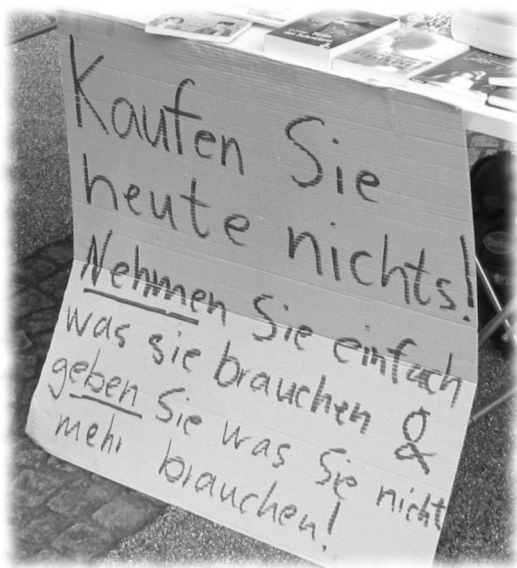 Kaufen Sie
heute nichts!
Nehmen Sie einfach
was sie brauchen &
geben Sie was Sie nicht
mehr brauchen!